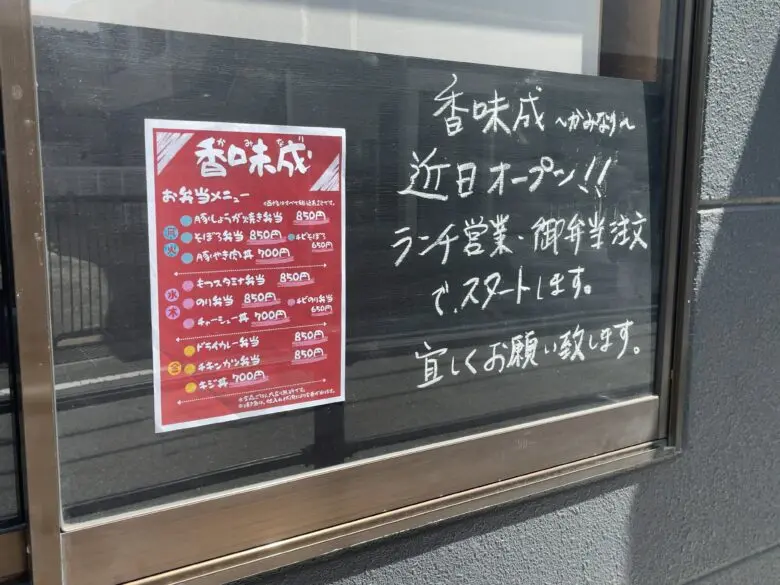 かみなり
香味成
お弁当メニュー
月
火
豚しょうが焼き弁当 850円
そぼろ弁当 850円 チビそぼろ 650円
豚やき肉丼 700円
水
木
もつスタミナ弁当 850円
のり弁当 850円 チビのり弁当 650円
チャーシュー丼 700円
金
ドライカレー弁当 850円
チキンカツ弁当 850円
キジ丼 700円
香味成 ～かみなり～
近日オープン!!
ランチ営業・御弁当注文
で、スタートします。
宜しくお願い致します。